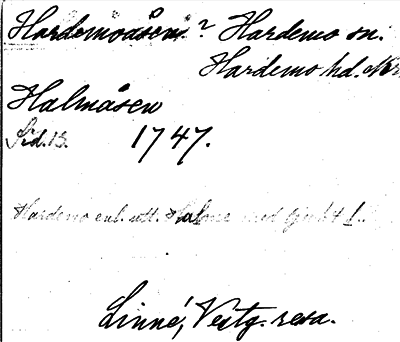 Hardemoåsen? Hardemo sn.
Hardemo hd. Ner.
Halmåsen
Sid. 13. 1747.
Hardemo enl. utt. med ljudet l.
Linné, Vestg. resa.